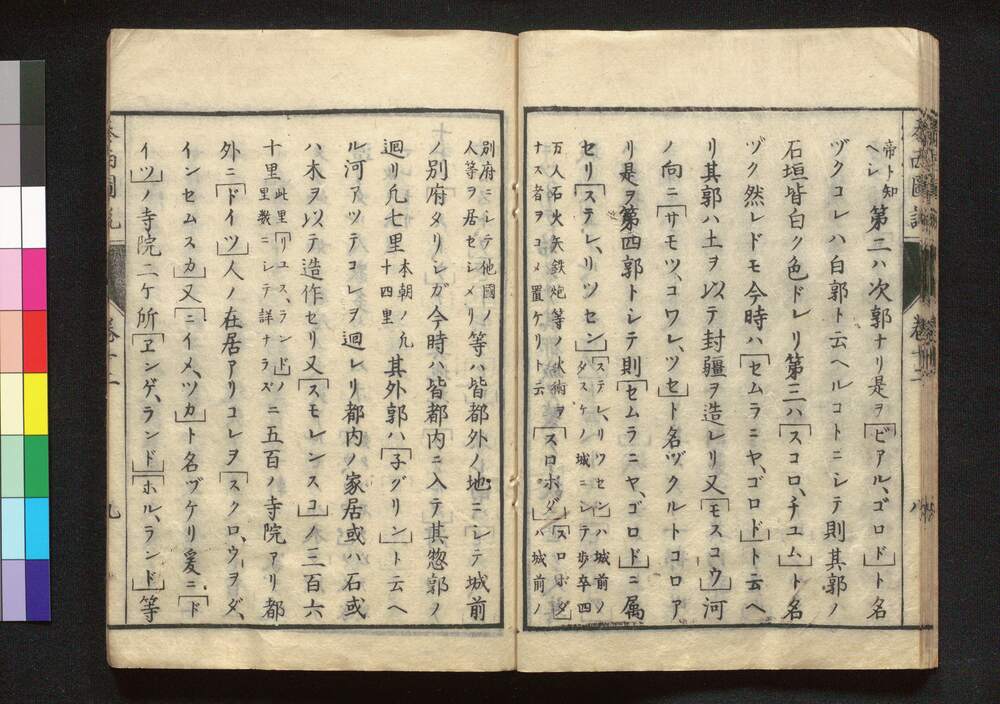 帝ト知
ヘシ
第二ハ次郭ナリ是ヲ「ビアル、ゴロド」ト名
ヅクコレハ白郭ト云ヘルコトニシテ則其郭ノ
石垣皆白ク色ドレリ第三ハ「スコロ、チユム」ト名
ヅク然レドモ今時ハ「セムラニヤ、ゴロド」ト云ヘ
リ其郭ハ土ヲ以テ封疆ヲ造レリ又「モスコウ」河
ノ向ニ「サモツ、コワレ、ツセ」ト名ヅクルトコロア
リ是ヲ第四郭トシテ則「セムラニヤ、ゴロド」ニ属
セリ「ステレ、リツセン」
「ステレ、リツセン」ハ城前ノ
ダスケノ城ニシテ歩卒四
万人石火矢鉄炮等ノ火術ヲ
ナス者ヲコメ置ケリト云
「スロボダ」
「スロボダ」
ハ城前ノ
別府ニシテ他國ノ
人等ヲ居セシメリ
等ハ皆都外ノ地ニシテ城前
ノ別府タリシガ今時ハ皆都内ニ入テ其惣郭ノ
迴リ凡七里
本朝ノ凡
十四里
其外郭ハ「子グリン」ト云ヘ
ル河アツテコレヲ迴レリ都内ノ家居或ハ石或
ハ木ヲ以テ造作セリ又「スモレンスコ」ノ三百六
十里
此里「リユス、ランド」ノ
里数ニシテ詳ナラズ
ニ五百ノ寺院アリ都
外ニ「ドイツ」人ノ在居アリコレヲ「スクロ、ウヲダ、
インセムスカ」又「ニイメ、ツカ」ト名ヅケリ爰ニ「ド
イツ」ノ寺院二ケ所「ヱンゲ、ランド」「ホル、ランド」等
卷十二
八
九